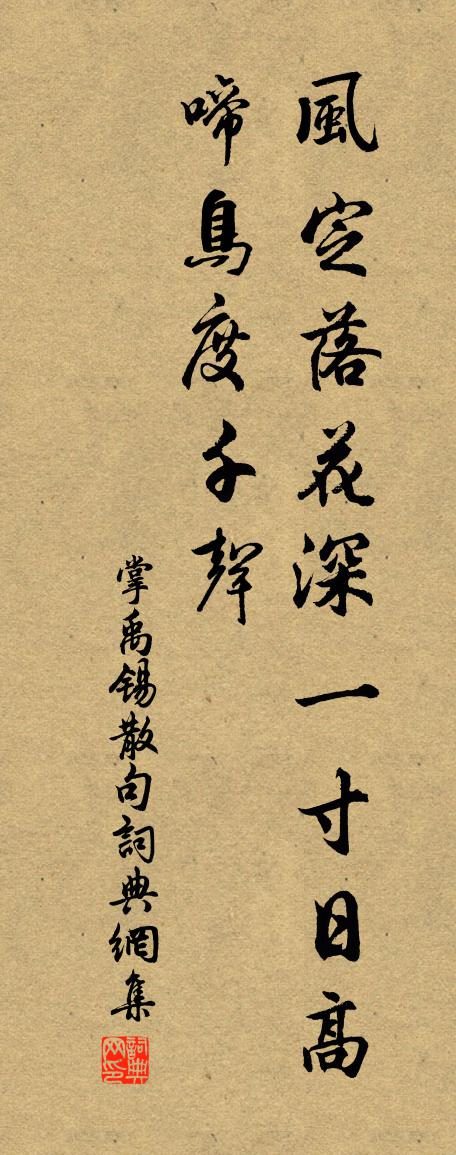 風定落花深一寸日高
啼鳥度千聲
掌禹锡散句詞典網集
詞典网印